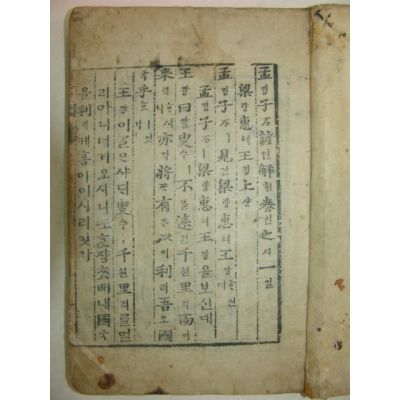 孟ᄆᆡᆼ子ᄌᆞ諺언解ᄒᆡ卷권之지一일
梁량惠혜王왕上샹
孟ᄆᆡᆼ子ᄌᆞㅣ見견梁량惠혜王왕ᄒᆞ신대
孟ᄆᆡᆼ子ᄌᆞㅣ梁량惠혜王왕을보신대
王왕曰왈叟수ㅣ不블遠원千쳔里리而이
來ᄅᆡᄒᆞ시니亦역將쟝有유以이利리吾오國
국乎호
王왕이ᄀᆞᆯᄋᆞ샤ᄃᆡ叟수ㅣ千쳔里리ᄅᆞᆯ멀
리아니너겨오시니ᄯᅩᄒᆞᆫ쟝ᄎᆞᆺᄡᅥ내國국
을利리케ᄒᆞᆷ이이시리잇가